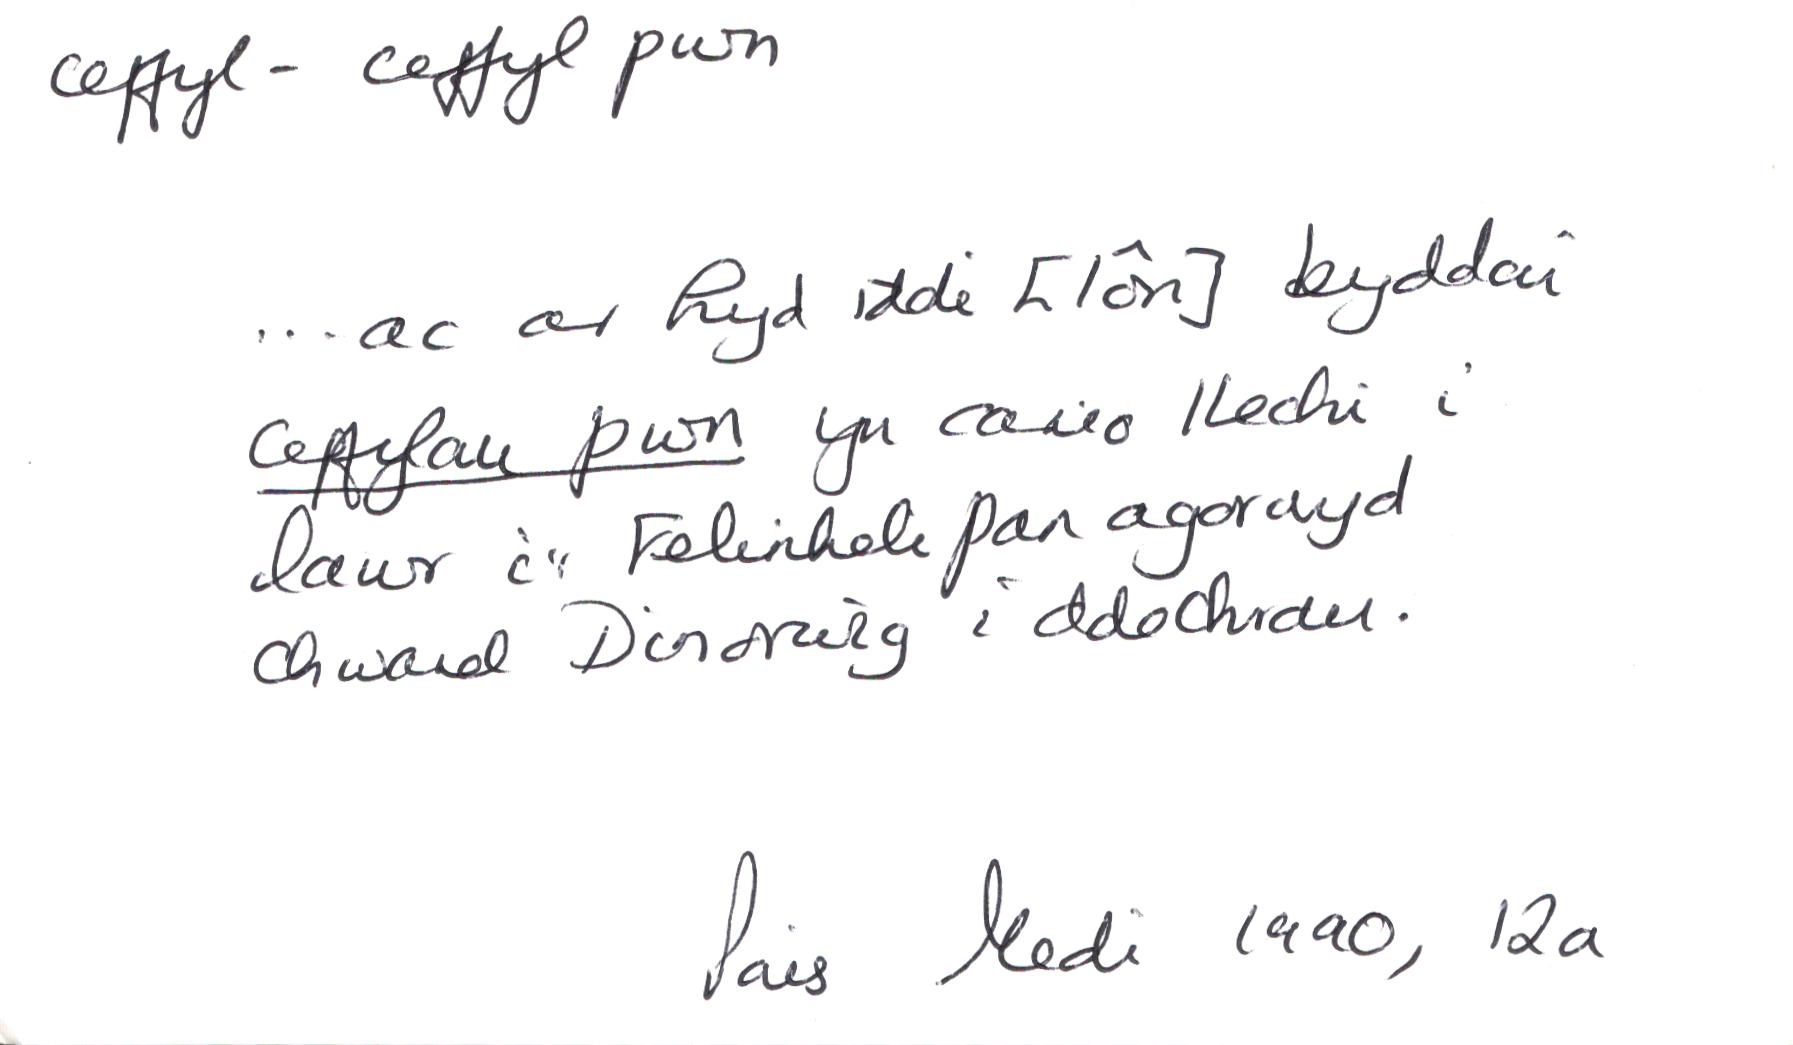 ceffyl - ceffyl pwn
...ac ar hyd iddi [lôn] byddai
ceffylau pwn yn cario llechi i
lawr i'r Felinheli pan agorwyd
chwarel Dinorwig i ddechrau.
Pais Medi 1990, 12a